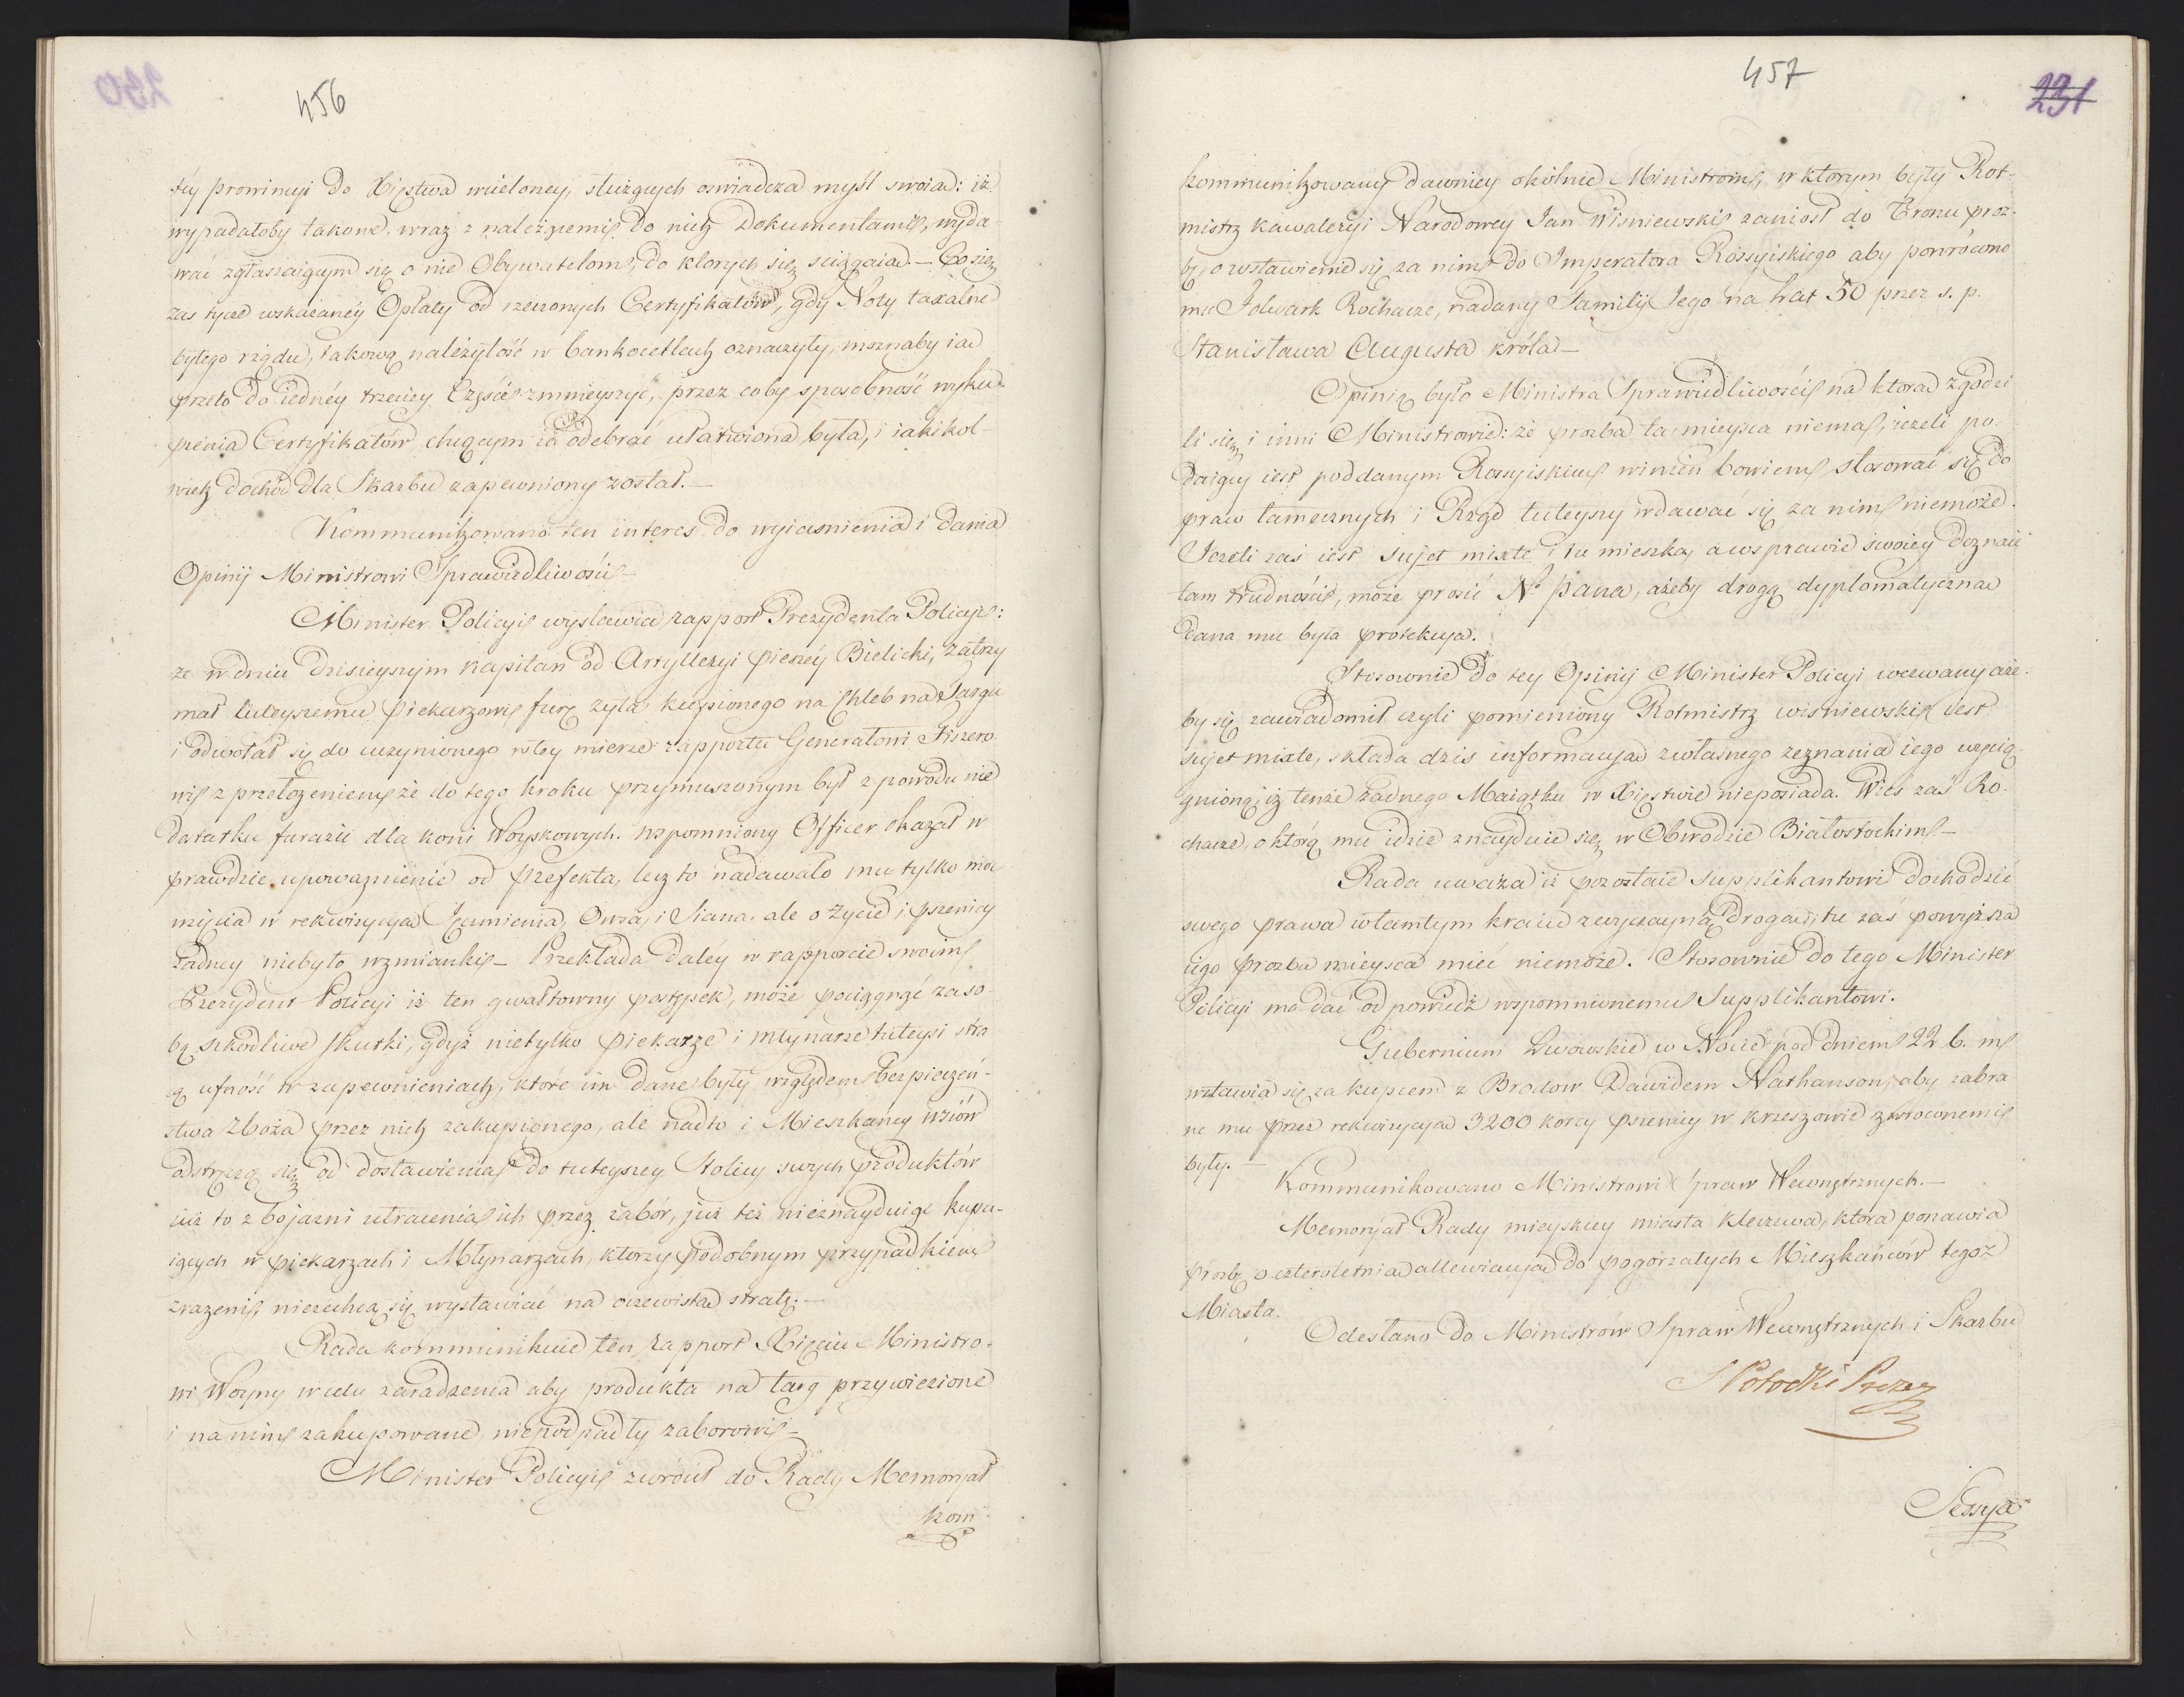 456
téy prowincyi do Xięstwa wcieloney, służących oswiadcza myśl swoia: iż
wypadałoby takowe, wraz z należącemi do nich Dokumentami, wyda-
wać zgłasiaiącym się o nie Obywatelom, do ktorych się sciągaią. — Co się
zaś tycze wskazanéy Opłaty od rzeczonych Certyfikatów, gdy Noty taxalne
byłego rządu, takową należytość w bankocetlach oznaczyły, moznaby ia
przeto do iednéy trzeciey Części zmnieyszyć, przez coby sposobność wyku-
pienia Certyfikatów chcącym ie odebrać ułatwiona była, i iakikol-
wiek dochód dla Skarbu zapewniony został. —
Kommunikowano ten interes do wyiasnienia i dania
Opinij Ministrowi Sprawiedliwości —
Minister Policyi wystawia rapport Prezydenta Policyi:
że w dniu dzisieyszym kapitan od Artylleryi pieszéy Bielicki, zatrzy
mał tuteyszemu piekarzowi furę zyta kupionego na Chleb na Targu
i odwołał się do uczynionego w tey mierze rapportu Generałowi Fiszero-
wi z przełożeniem że do tego kroku przymuszonym był z powodu nie
datatku furażu dla koni Woyskowych. wspomniony Officer okazał w
prawdzie upoważnienie od Prefekta, lecz to nadawało mu tylko moc
wzięcia w rekwizycyą Jęczmienia, Owsa, i Siana, ale o życie i pszenicy
żadney niebyło wzmianki — Przekłada daléy w rapporcie swoim
Prezydent Policyi iż ten gwałtowny postępek, może pociągnąć za so-
bą szkodliwe skutki, gdyż nietylko piekarze i młynarze tuteysi stra
cą ufność w zapewnieniach, które im dane były względem bezpieczeń-
stwa Zboża przez nich zakupionego, ale nadto i Mieszkańcy wsiów
odstręczą się od dostawienia do tuteyszey Stolicy swych produktów
iuż to z bojazni utracenia ich przez zabór, już też nieznayduiąc kupu-
iących w piekarzach i Młynarzach, ktorzy podobnym przypadkiem
zrazeni, niezechcą się wystawiać na oczewistą stratę. —
Rada kommunikuie ten rapport Xięciu Ministro-
wi Woyny w celu zaradzenia aby produkta na targ przywiezione
i na nim zakupowane, niepodpadły zaborowi —
Minister Policyi zwrócił do Rady Memoryał
kom
457
231
kommunikowany dawniey okólnie Ministrom, w ktorym były Rot-
mistrz kawaleryi Narodowey Jan Wisniewski zaniosł do Tronu proź-
bę, o wstawienie się za nim do Imperatora Rossyiskiego aby powrócono
mu Folwark Rochacze, nadany Familij Jego na lat 50 przez s. p.
Stanisława Augusta króla —
Opinią było Ministra Sprawiedliwości na ktora zgodzi
li się i inni Ministrowie: że prozba ta mieysca niema, ieżeli po-
daiący iest poddanym Rossyiskim winien bowiem stosować się do
praw tamecznych i Rząd tuteyszy wdawać się za nim niemoże.
Jeżeli zaś iest sujet mixte i tu mieszka, a w sprawie swoiey doznaie
tam trudności, może prosić N° Pana, ażeby drogą dyplomatyczna
dana mu była protekcya.
Stosownie do tey Opinij Minister Policyi wezwany aże-
by się zawiadomił czyli pomieniony Rotmistrz wisniewski iest
sujet mixte, składa dzis informacyą z własnego zeznania iego wycią-
gnioną, iż tenże żadnego Maiątku w Xięstwie nieposiada. Wieś zaś Ro-
chacze, o którą mu idzie znayduie się w Obwodzie Białostockim —
Rada uważa iż pozostaie Supplikantowi dochodzić
swego prawa w tamtym kraiu zwyczayną drogą, tu zaś powyższa
iego prozba mieysca mieć niemoże. Stosownie do tego Minister
Policyi ma dać odpowiedź wspomnionemu Supplikantowi.
Gubernium Lwowskie w Nocie pod dniem 22 b. m
wstawia się za kupcem z Brodow Dawidem Nathanson, aby zabra
ne mu przez rekwizycya 3200 korcy pszenicy w krzeszowie zwroconemi
były. —
Kommunikowano Ministrowi Spraw Wewnętrznych. —
Memoryał Rady mieyskiey miasta Kleczewa, ktora ponawia
prozbę o czteroletnią allewiacyą do pogorzałych Mieszkańców tegoż
Miasta.
Odesłano do Ministrów Spraw Wewnętrznych i Skarbu
S Potocki Prezes
Sessya